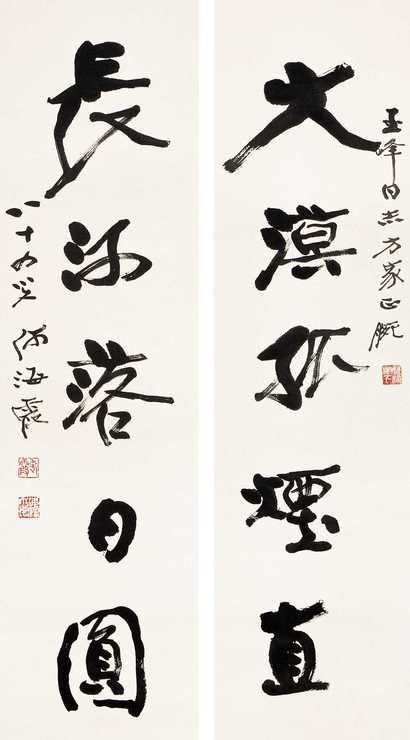 玉峰同志方家正腕
大漠孤煙直
長河落日圓
八十叟 何海霞